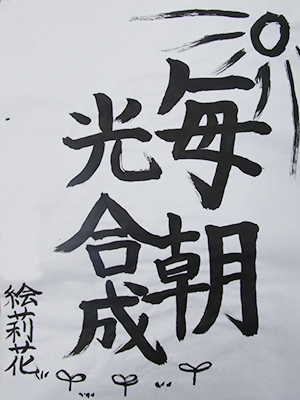 毎朝
光合成
絵莉花